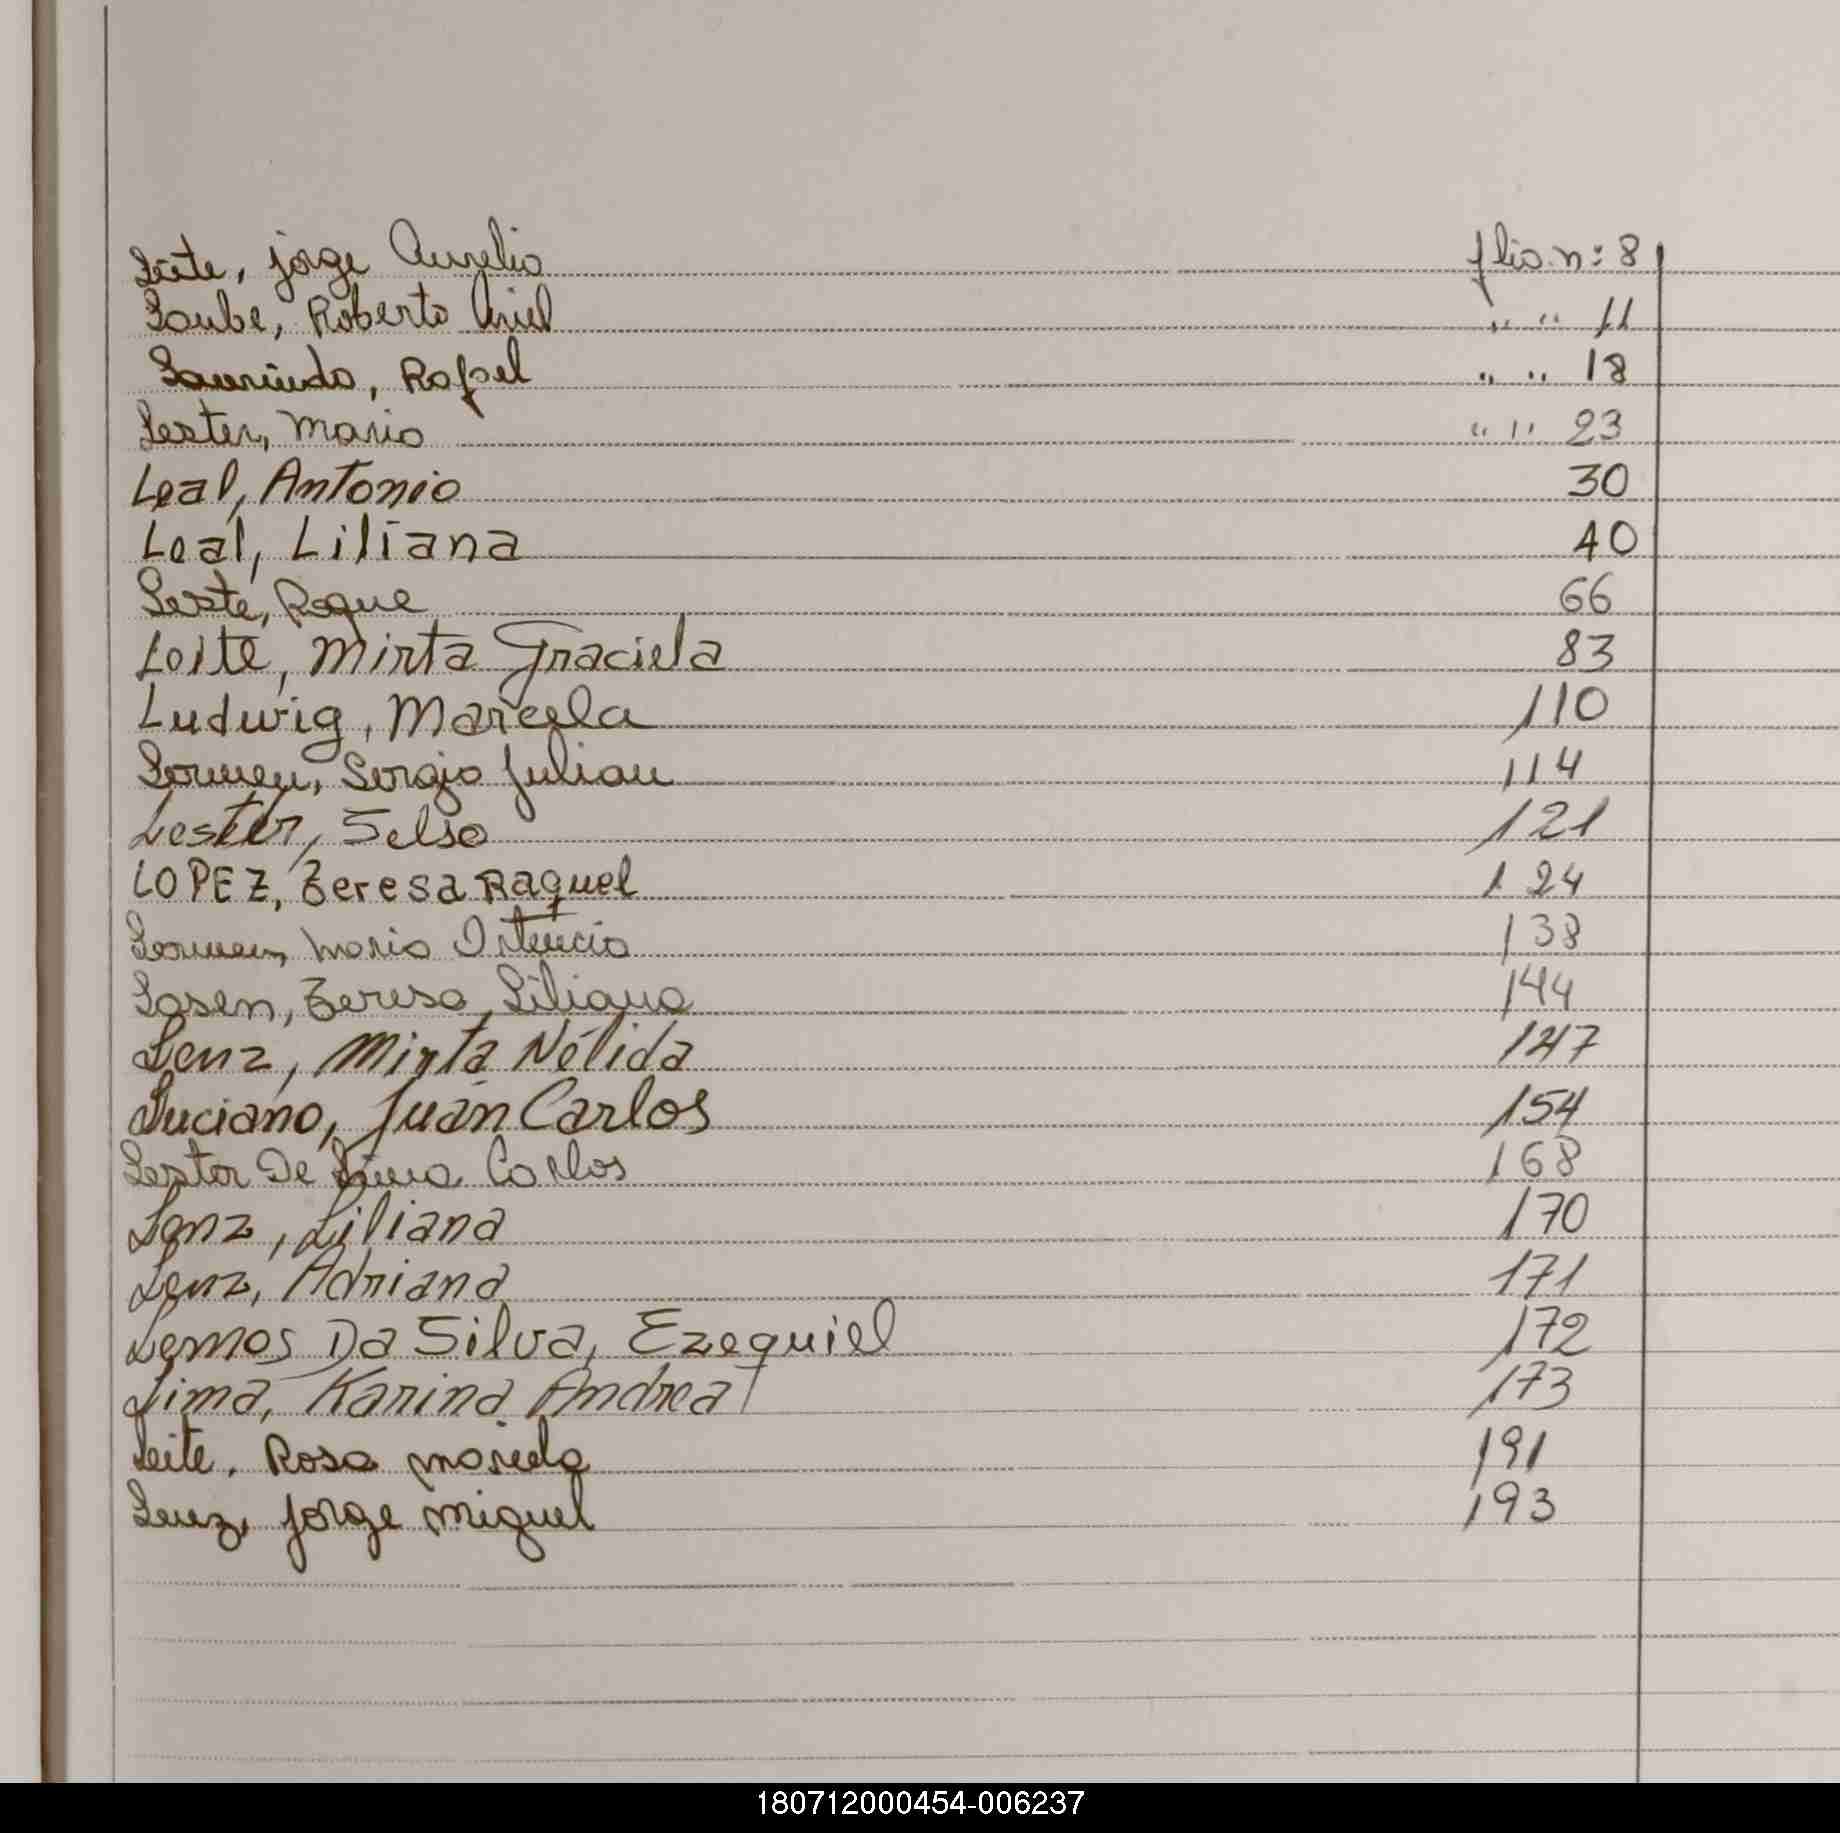 Leite, Jorge Aurelio flio n: 8
Laube, Roberto Ariel " " 11
Laurindo, Rafael " " 18
Lester, Mario " " 23
Leal, Antonio 30
Leal, Liliana 40
Leste, Roque 66
Leite, Mirta Graciela 83
Ludwig, Marcela 110
Sergio Julian 114
Lester, Selso 121
LOPEZ, Teresa Raquel 124
Maria Ortencia 138
Lasen, Teresa Liliana 144
Lenz, Mirta Nélida 147
Luciano, Juan Carlos 154
Lestor De Lima Carlos 168
Lenz, Liliana 170
Lenz, Adriana 171
Lemos Da Silva, Ezequiel 172
Lima, Karina Andrea 173
Leite, Rosa Mariela 191
Lenz, Jorge Miguel 193
180712000454-006237